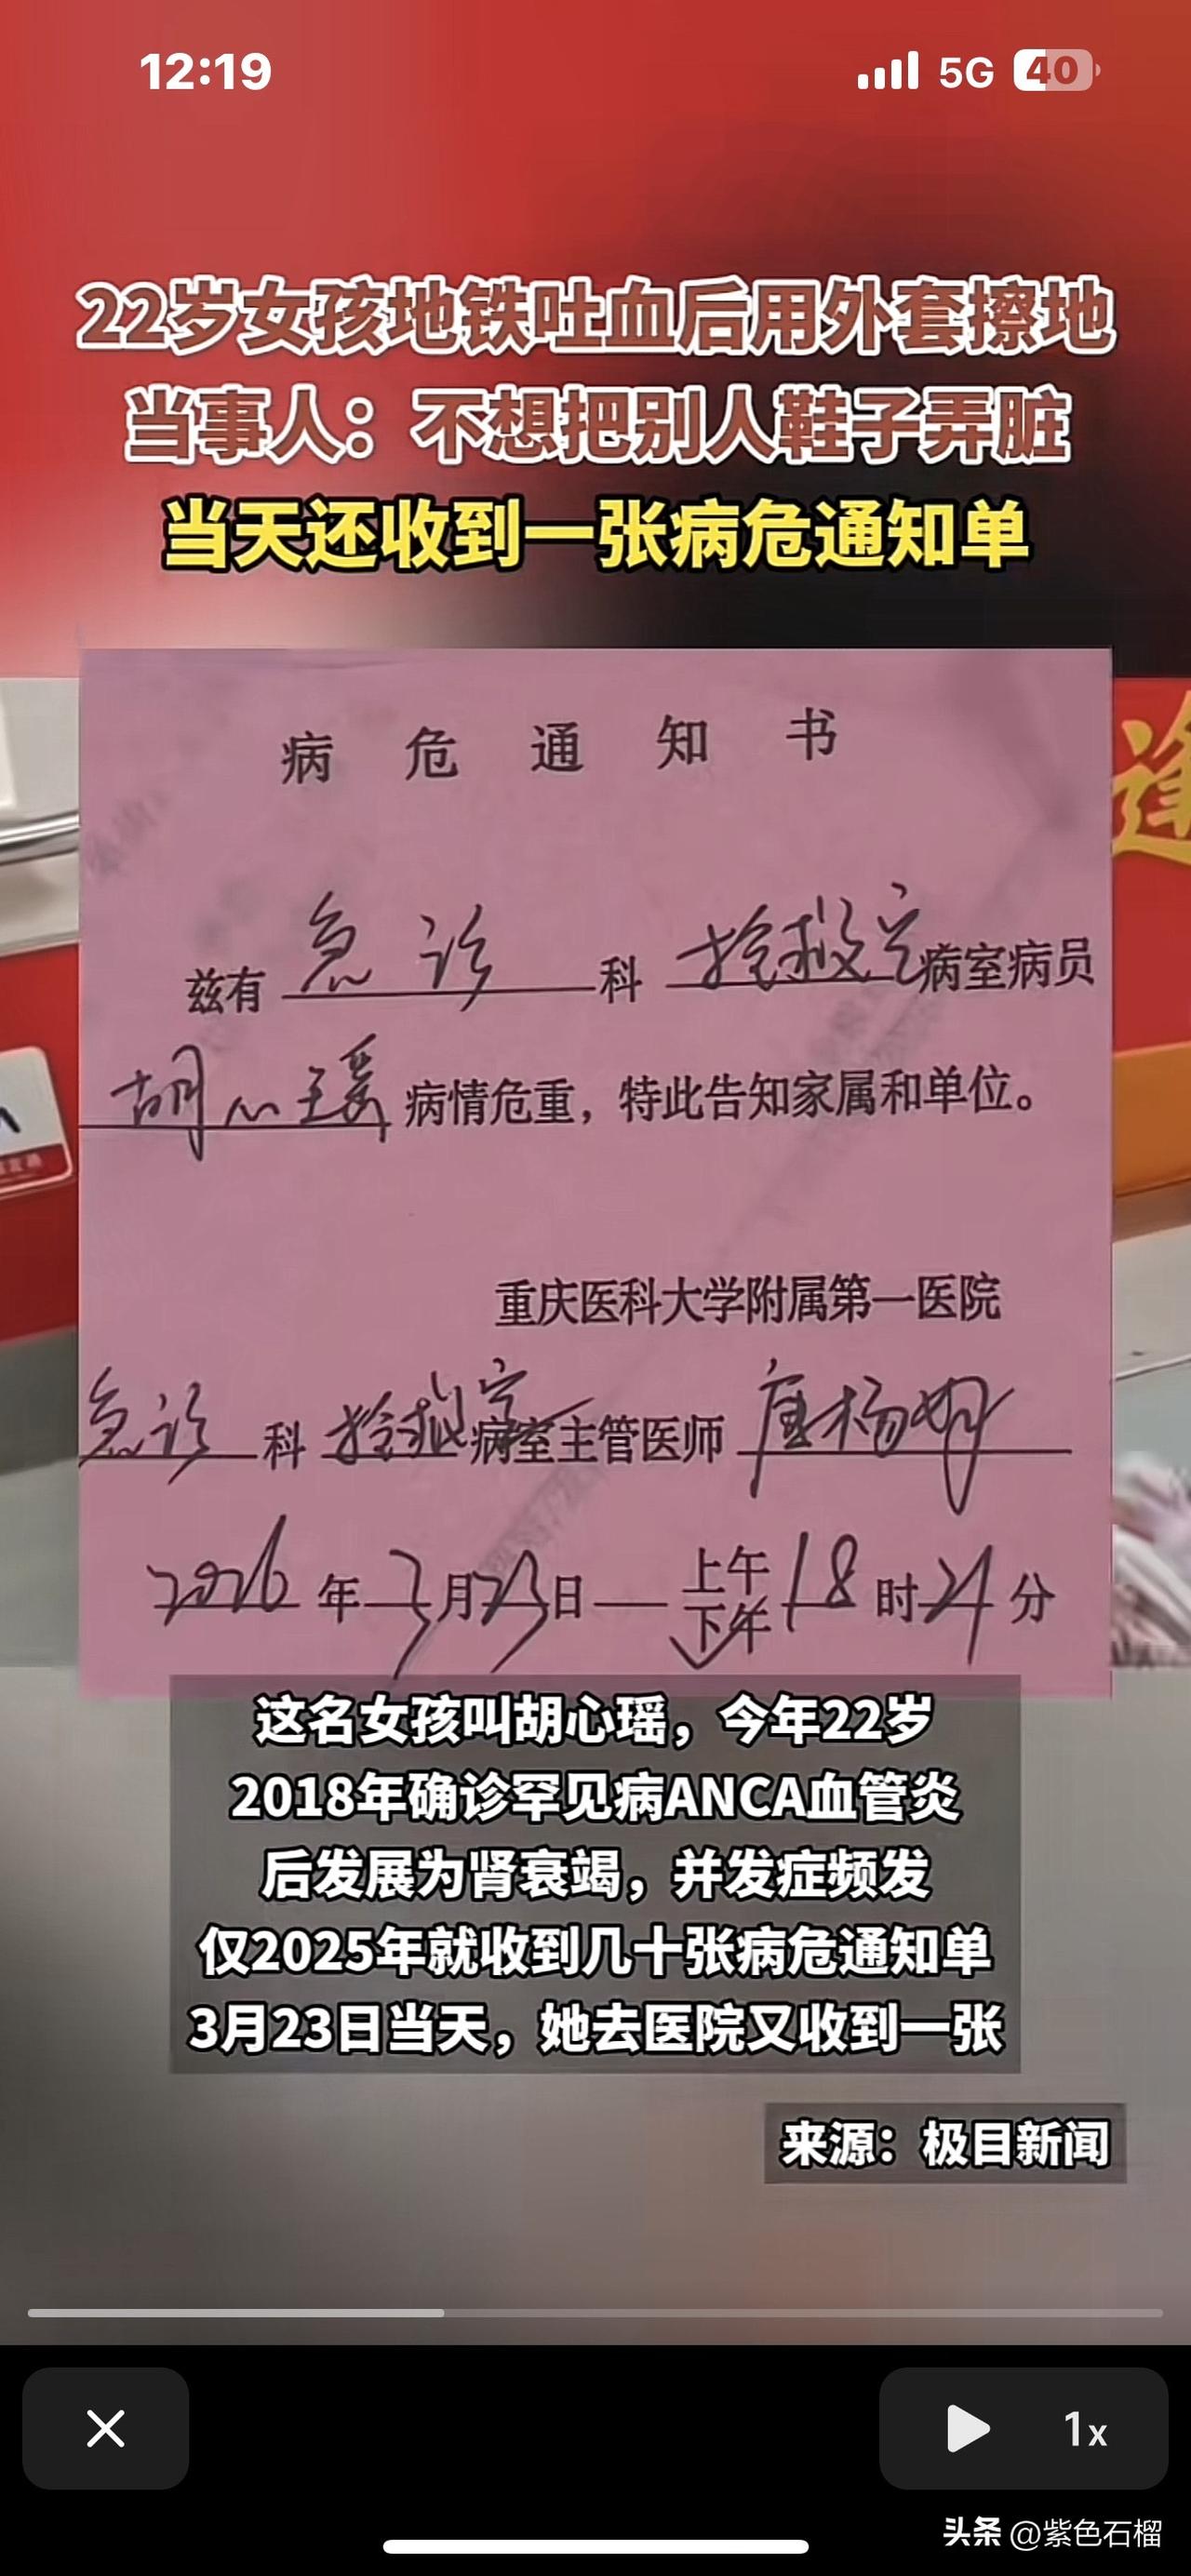 12:19
5G 40
22岁女孩地铁吐血后用外套擦地
当事人：不想把别人鞋子弄脏
当天还收到一张病危通知单
病危通知书
兹有 急诊 科 抢救室 病室病员
胡心瑶 病情危重，特此告知家属和单位。
重庆医科大学附属第一医院
急诊 科 抢救室 病室主管医师 唐杨
2026 年 3 月 23 日 上午 下午 18 时 21 分
逢
这名女孩叫胡心瑶，今年22岁
2018年确诊罕见病ANCA血管炎
后发展为肾衰竭，并发症频发
仅2025年就收到几十张病危通知单
3月23日当天，她去医院又收到一张
来源：极目新闻
1x
头条 @紫色石榴